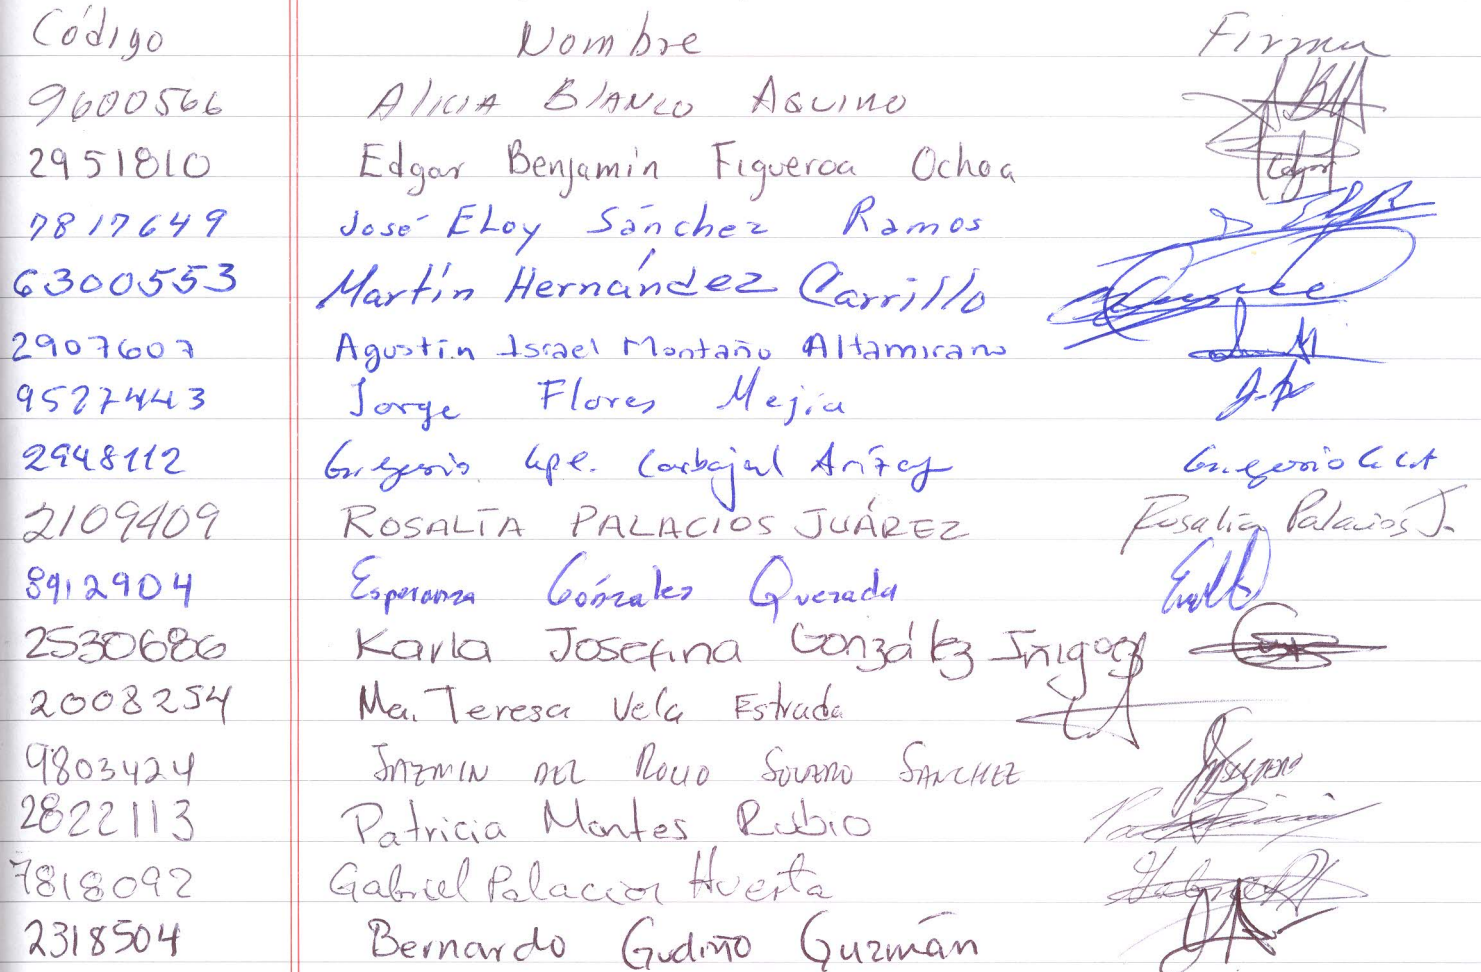 Código Nombre Firma
9600566 Alicia Blanco Aquino
2951810 Edgar Benjamin Figueroa Ochoa Edgar
7817649 José ELoy Sánchez Ramos
6300553 Martín Hernández Carrillo
2907607 Agustín Israel Montaño Altamirano
9527443 Jorge Flores Mejia
2948112 Gregorio Gpe. Carbajal Arizaga Gregorio G CA
2109409 ROSALÍA PALACIOS JUÁREZ Rosalía Palacios J.
8912904 Esperanza Gónzalez Quezada
2530686 Karla Josefina González Iñiguez
2008254 Ma. Teresa Vela Estrada
9803424 JAZMIN DEL ROCIO SOLTERO SANCHEZ
2822113 Patricia Montes Rubio
7818092 Gabriel Palacios Huerta
2318504 Bernardo Gudiño Guzmán